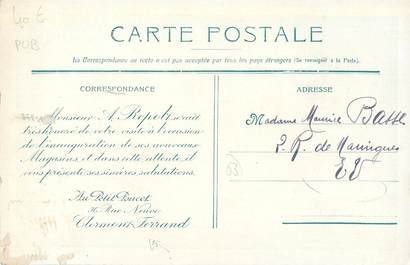 40 €
PUB
CARTE POSTALE
La Correspondance au recto n'est pas acceptée par tous les pays étrangers (Se renseigner à la Poste).
CORRESPONDANCE
Monsieur A. Repoly serait
très honoré de votre visite à l'occasion
de l'inauguration de ses nouveaux
Magasins et dans cette attente, il
vous présente ses sincères salutations.
Au Petit Poucet
16 Rue Neuve
Clermont-Ferrand
ADRESSE
Madame Maurice
2. R. de
EV
63